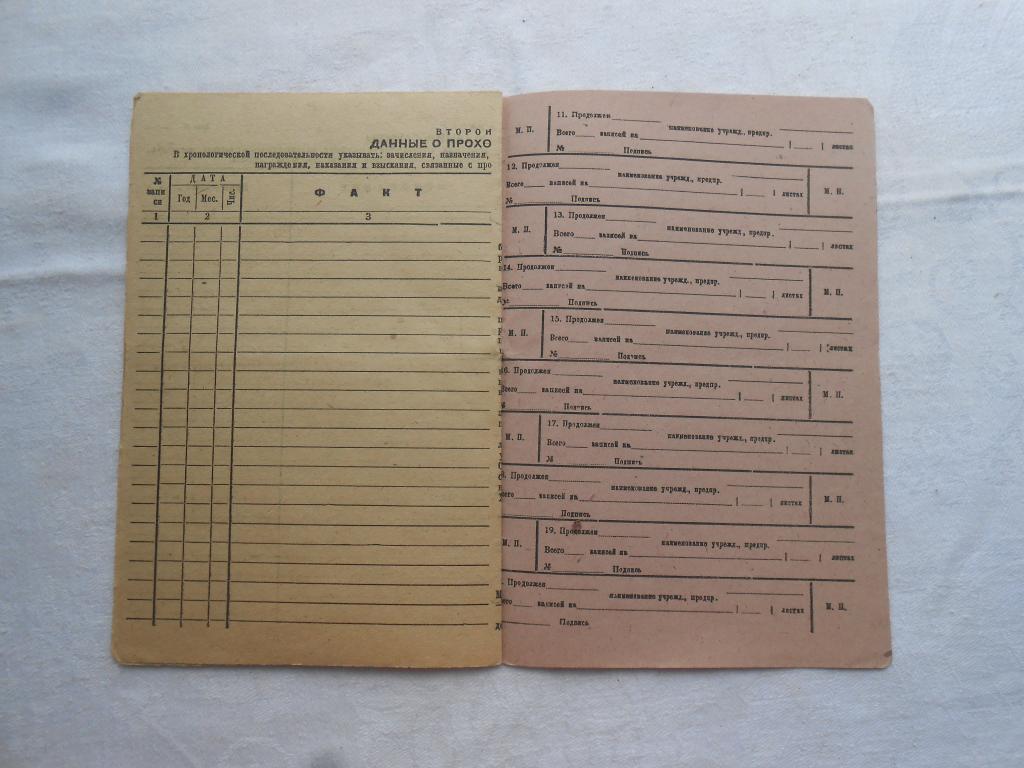 ВТОРОЙ
ДАННЫЕ О ПРОХО
В хронологической последовательности указывать: зачисления, назначения,
награждения, наказания и взыскания, связанные с про
№ запи си
ДАТА
Год Мес. Чис.
ФАКТ
1 2 3
11. Продолжен
М. П.
наименование учрежд., предпр.
Всего записей на листах
№ Подпись
12. Продолжен
наименование учрежд., предпр.
Всего записей на листах
М. П.
№ Подпись
13. Продолжен
М. П.
наименование учрежд., предпр.
Всего записей на листах
№ Подпись
14. Продолжен
наименование учрежд., предпр.
Всего записей на листах
М. П.
Подпись
15. Продолжен
М. П.
наименование учрежд., предпр.
Всего записей на листах
№ Подпись
6. Продолжен
наименование учрежд., предпр.
Всего записей на листах
М. П.
Подпись
17. Продолжен
М. П.
наименование учрежд., предпр.
Всего записей на листах
№ Подпись
. Продолжен
наименование учрежд., предпр.
его записей на листах
М. П.
Подпись
19. Продолжен
М. П.
наименование учрежд., предпр.
Всего записей на листах
№ Подпись
. Продолжен
наименование учрежд., предпр.
его записей на листах
М. П.
Подпись